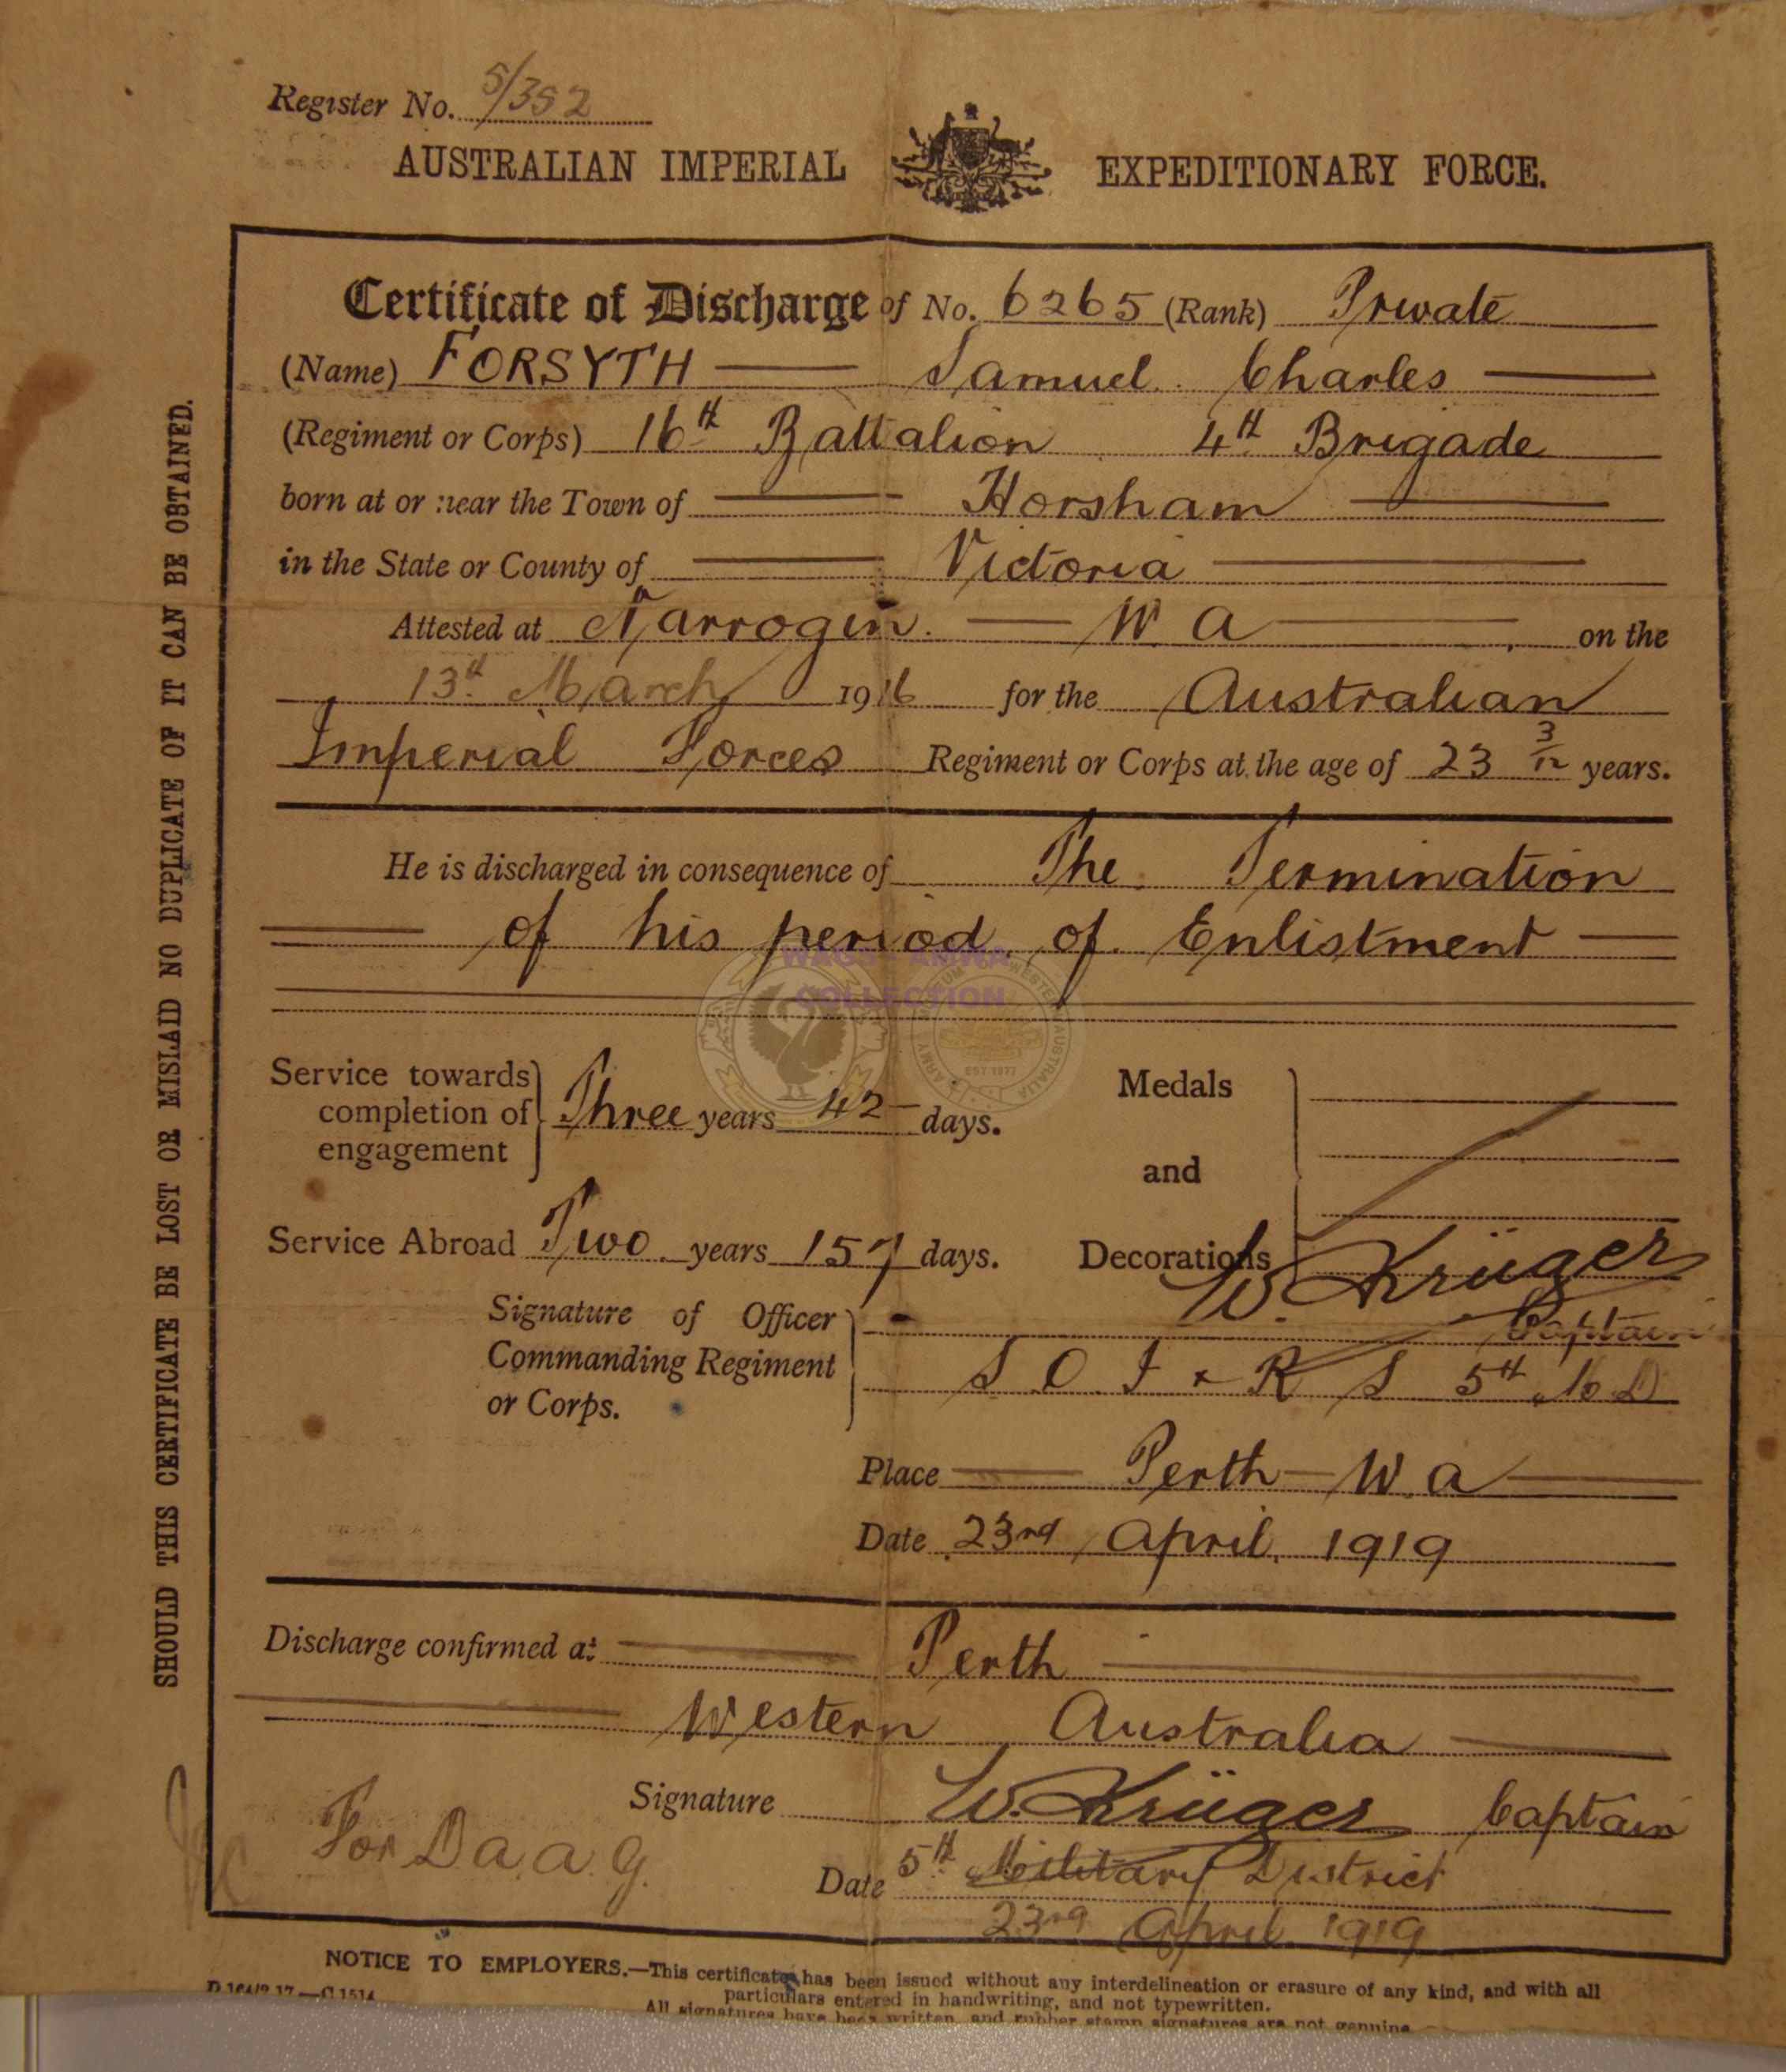 Register No. 5/352
AUSTRALIAN IMPERIAL EXPEDITIONARY FORCE.
Certificate of Discharge of No. 6265 (Rank) Private
(Name) FORSYTH Samuel Charles
(Regiment or Corps) 16th Battalion 4th Brigade
born at or near the Town of Horsham
in the State or County of Victoria
Attested at Narrogin. W A on the
13th March 1916 for the Australian
Imperial Forces Regiment or Corps at the age of 23 3/12 years.
He is discharged in consequence of The Termination
of his period of Enlistment
WAGS - AMWA
COLLECTION
Service towards completion of engagement Three years 42 days.
Medals and Decorations
EST 1977
Service Abroad Two years 157 days.
W. Krüger
Signature of Officer Commanding Regiment or Corps. Captain
S O I & R S 5th M.D
Place Perth W.A
Date 23rd April. 1919
Discharge confirmed at Perth
Western Australia
Signature W. Krüger Captain
For D a.a.g.
Date 5th Military District
23rd April. 1919
NOTICE TO EMPLOYERS.—This certificate has been issued without any interdelineation or erasure of any kind, and with all
particulars entered in handwriting, and not typewritten.
All signatures have been written, and rubber stamp signatures are not genuine
SHOULD THIS CERTIFICATE BE LOST OR MISLAID NO DUPLICATE OF IT CAN BE OBTAINED.